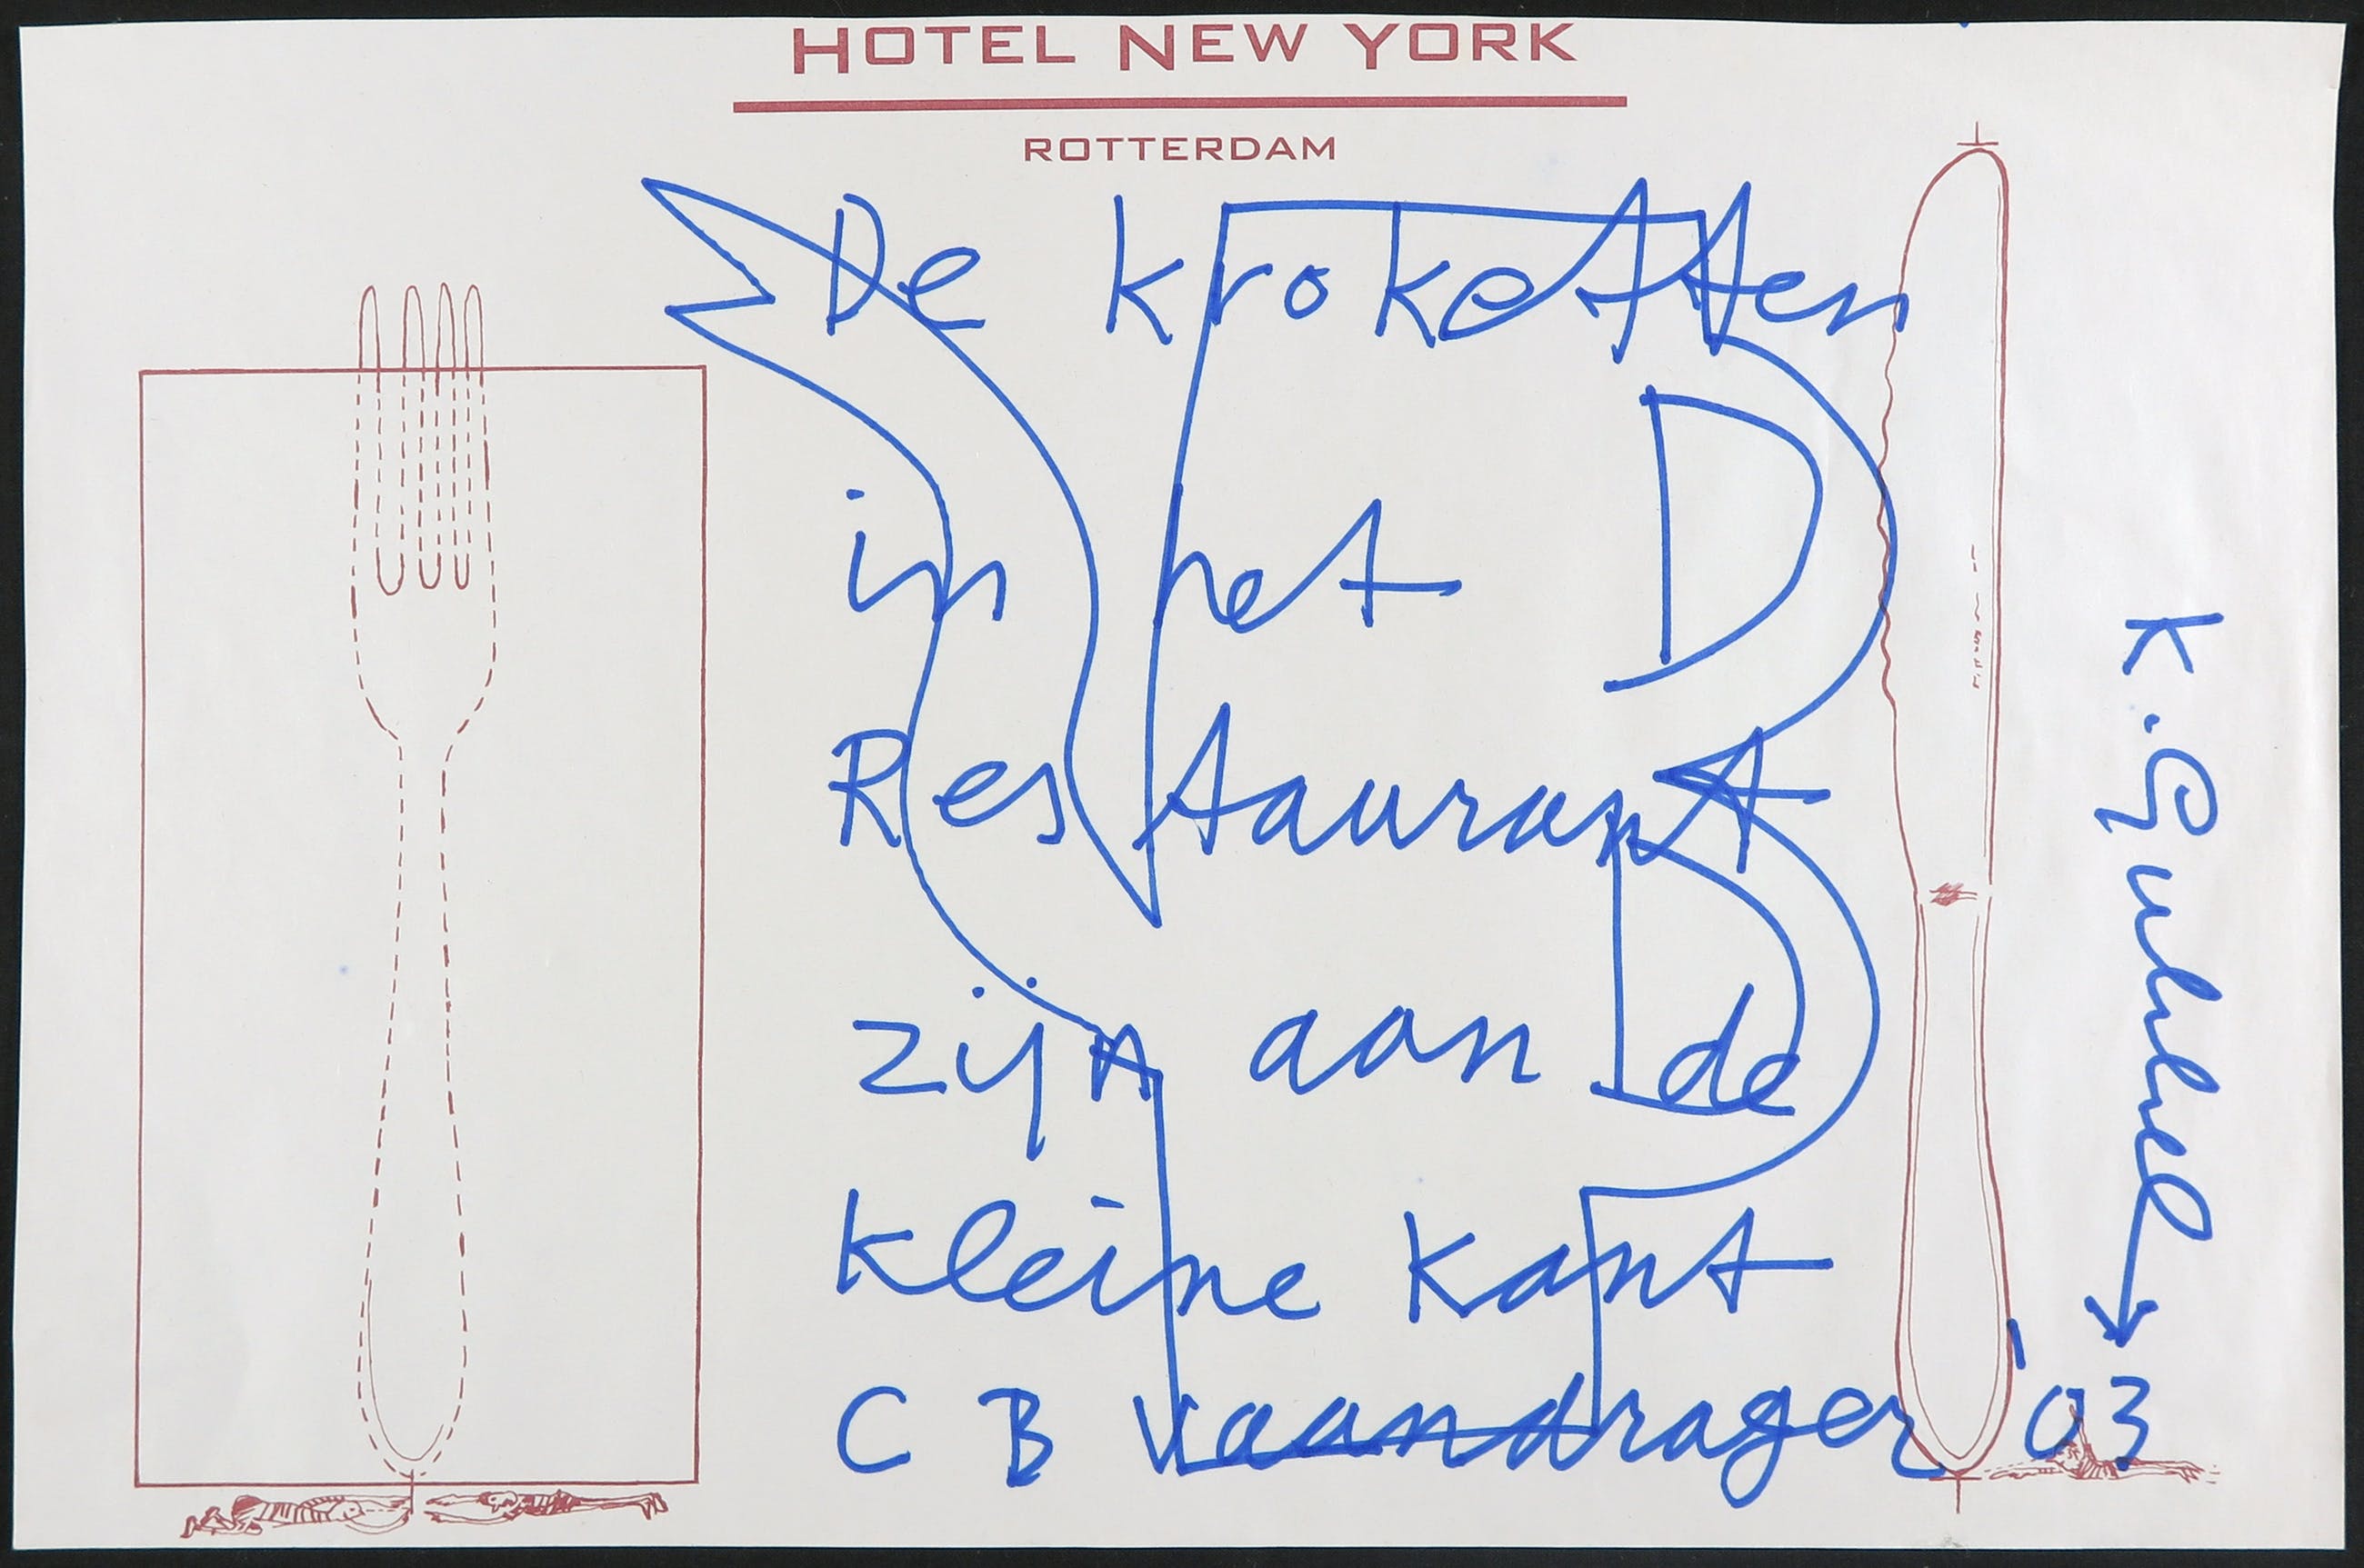 HOTEL NEW YORK
ROTTERDAM
De kroketten
in het
Restaurant
zijn aan de
kleine kant
C B Vaandrager
K. Gulhel
'03